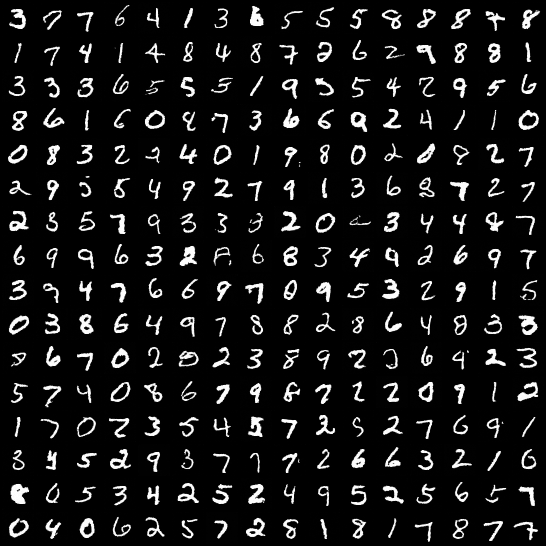 3 7 7 6 4 1 3 6 5 5 5 8 8 8 7 8
1 7 4 1 4 8 4 8 7 2 6 2 9 8 8 1
3 3 3 6 5 5 3 1 9 5 5 4 2 9 5 6
8 6 1 6 0 8 7 3 6 6 9 2 4 1 1 0
0 8 3 2 2 4 0 1 9 8 0 2 0 8 2 7
2 9 5 8 4 9 2 7 9 1 3 6 8 7 2 7
2 8 5 7 9 3 3 3 2 0 2 3 4 4 8 7
6 9 9 6 3 2 8 6 8 3 4 9 2 6 9 7
3 9 4 7 6 6 9 7 0 9 5 3 2 9 1 5
0 3 8 6 4 9 7 8 8 2 8 6 4 8 3 3
8 6 7 0 2 0 2 3 8 9 2 6 9 2 3
5 7 4 0 8 6 7 9 8 7 2 2 0 9 1 2
1 7 0 7 3 5 4 5 7 2 8 2 7 6 9 1
3 4 5 2 9 3 7 7 7 2 6 6 3 2 1 6
8 6 5 3 4 2 5 2 4 9 5 2 5 6 5 7
0 4 0 6 2 5 7 2 8 1 8 1 7 8 7 7